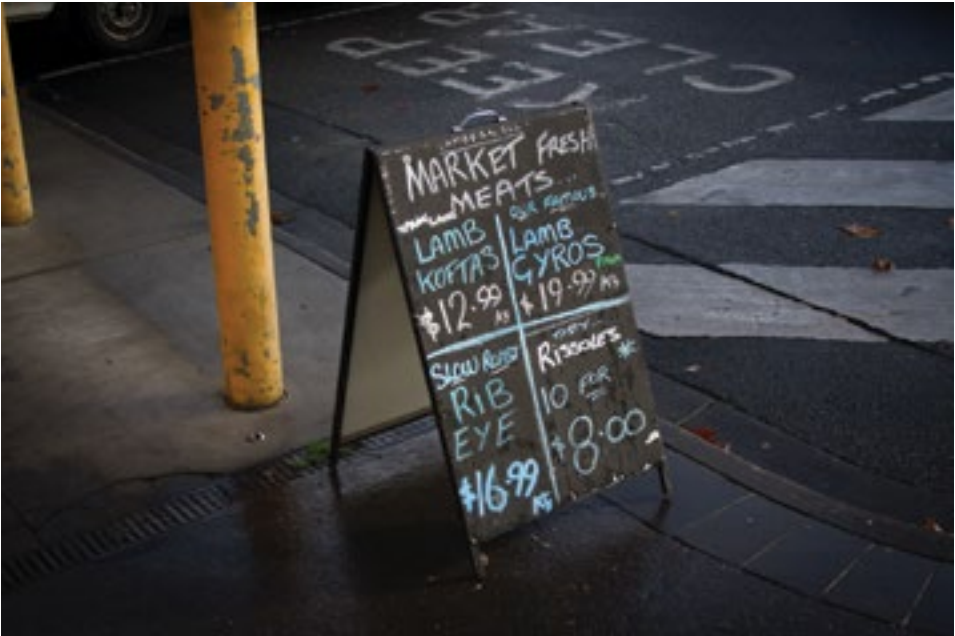 MARKET FRESH!
MEATS...
LAMB
KOFTAS
$12.99
KG
OUR FAMOUS
LAMB
GYROS
$19.99 KG
SLOW ROAST
RIB
EYE
$16.99
KG
RISSOLES
10 FOR
$8.00
KEEP
CLEAR